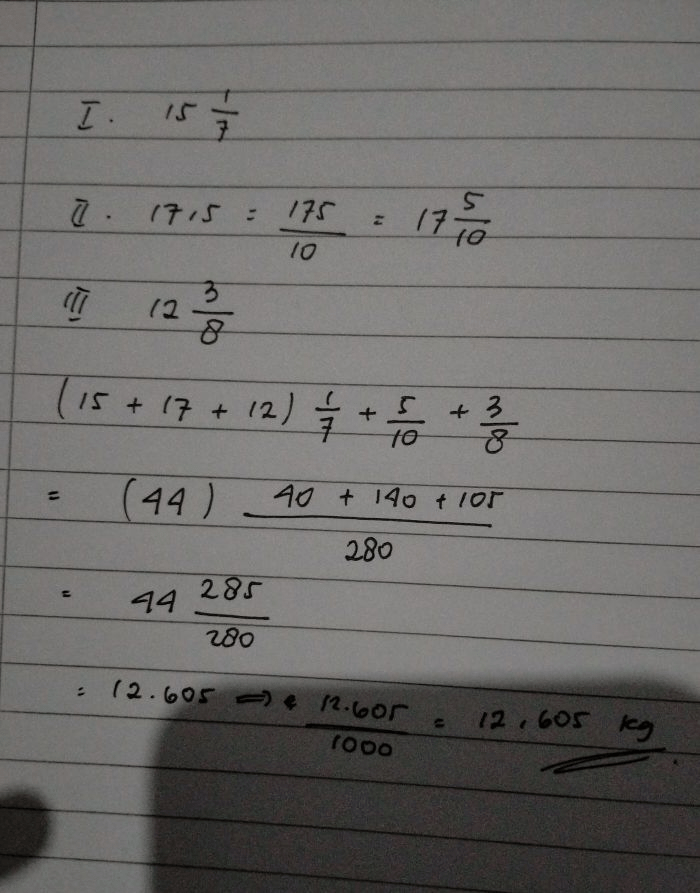 I. 15 1/7
II. 17,5 = 175/10 = 17 5/10
III 12 3/8
(15 + 17 + 12) 1/7 + 5/10 + 3/8
= (44) 40 + 140 + 105/280
= 44 285/280
= 12.605 => 12.605/1000 = 12,605 kg